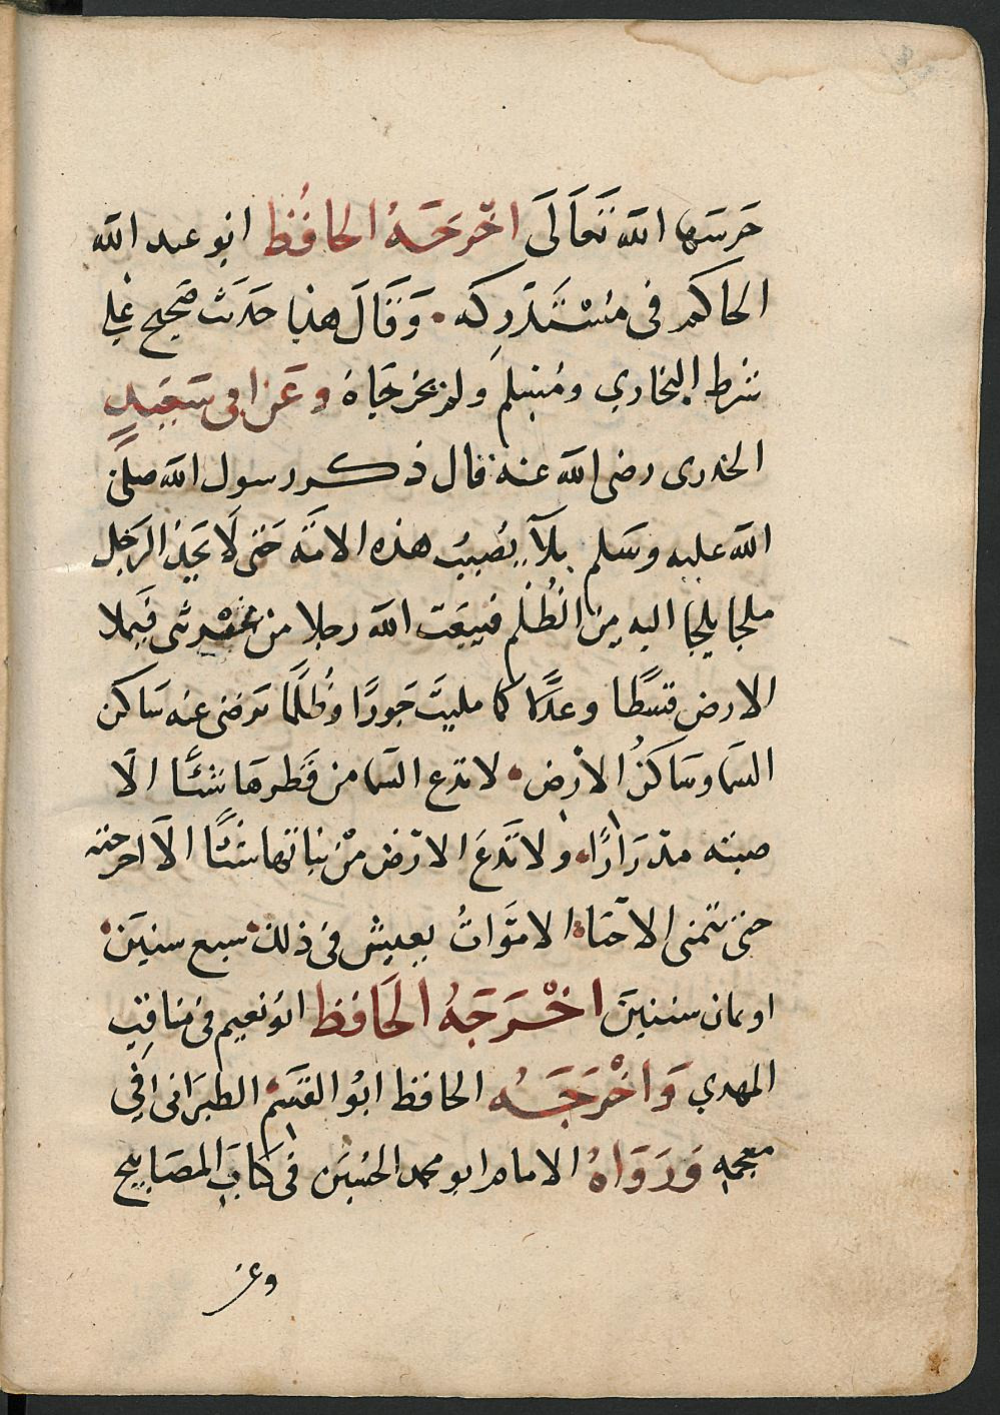 حَرسَها الله تَعَالَى اخْرجَهُ الحافُظ ابو عبد الله
الحاكم فى مُسْتَدْرِكه وَقَالَ هذا حَدَيث صَحِيح عَلي
شرط البخاري ومُسِلم ولم يخرجَاهُ وعَن ابى سَعِيدٍ
الخدرى رضى الله عنه قال ذكر رسول الله صلى
الله عليه وسَلم بلآ يُصِيبُ هذه الامّه حَتى لَا يَجِدُ الرَجل
ملجا يلجا اليه مِن الظُلم فيبعَث الله رجلا من عِتْرتى فَيملا
الارض قسطًا وعدلًا كما مليت جَورًا وظُلمًا يَرضى عنه سَاكن
السَما وسَاكنُ الارْض لا تدع السَما من قَطرهَا شئًا الّا
صبته مدْرَارًا ولا تَدعَ الارْض مْن نباتها شئًا الّا اخرجته
حتى يتمنى الاحَيَاء الامْوَاتُ يعيش فى ذلك سبع سنين
او ثمان سنينَ اخْرَجَهُ الحَافظ ابو نعيم فى مناقب
المهدي وَاخْرَجَهُ الحافظ ابُو القسَم الطبرَانى فى
معجمه وَرَوَاهُ الامام ابو محمد الحسَين فى كتاب المصَابيح
وعن